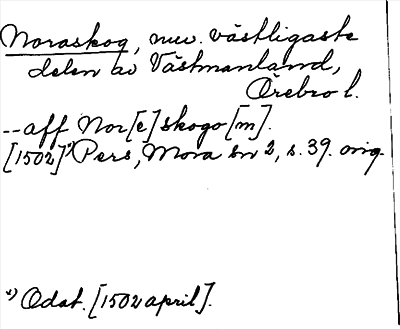 Noraskog, nuv. västligaste
delen av Västmanland,
Örebro l.
--aff Nor[e]skogo[m].
[1502]*) Pers, Mora sn 2, s. 39. orig.
*) Odat. [1502 april].